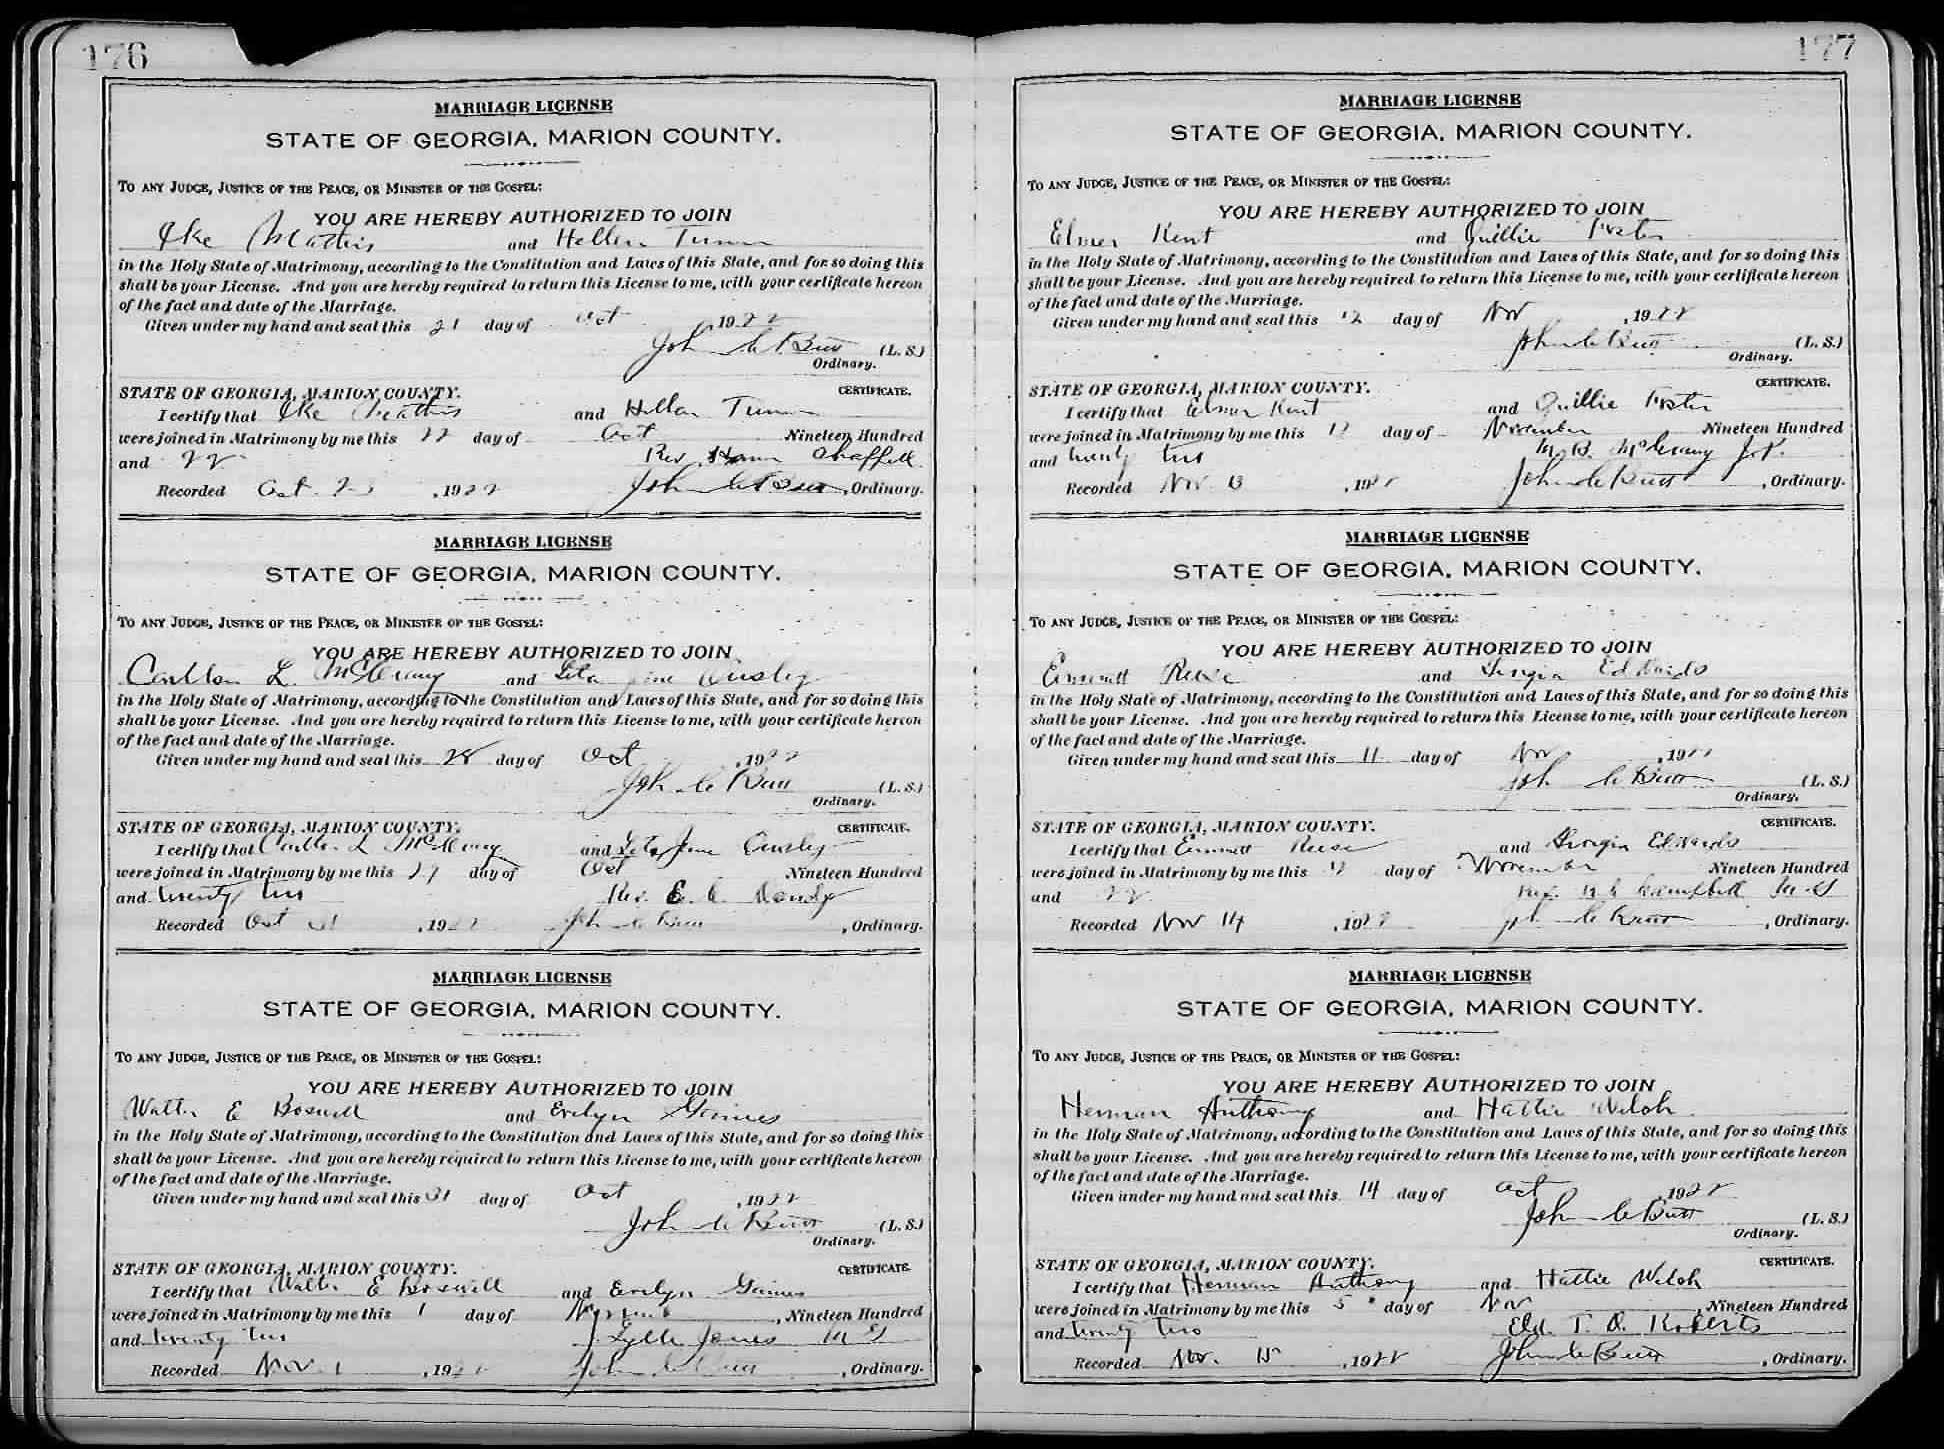 176
MARRIAGE LICENSE
STATE OF GEORGIA, MARION COUNTY.
TO ANY JUDGE, JUSTICE OF THE PEACE, OR MINISTER OF THE GOSPEL:
YOU ARE HEREBY AUTHORIZED TO JOIN
Ike Mathis and Hellen Turner
in the Holy State of Matrimony, according to the Constitution and Laws of this State, and for so doing this
shall be your License. And you are hereby required to return this License to me, with your certificate hereon
of the fact and date of the Marriage.
Given under my hand and seal this 21 day of Oct , 1922
John C Butt (L. S.)
Ordinary.
STATE OF GEORGIA, MARION COUNTY. CERTIFICATE.
I certify that Ike Mathis and Hellen Turner
were joined in Matrimony by me this 22 day of Oct Nineteen Hundred
and 22 Rev. Chaffell
Recorded Oct. 23 , 1922 John C Butt , Ordinary.
MARRIAGE LICENSE
STATE OF GEORGIA, MARION COUNTY.
TO ANY JUDGE, JUSTICE OF THE PEACE, OR MINISTER OF THE GOSPEL:
YOU ARE HEREBY AUTHORIZED TO JOIN
Carlton L. McCrary and Leta Jane Ansley
in the Holy State of Matrimony, according to the Constitution and Laws of this State, and for so doing this
shall be your License. And you are hereby required to return this License to me, with your certificate hereon
of the fact and date of the Marriage.
Given under my hand and seal this 28 day of Oct , 1922
John C Butt (L. S.)
Ordinary.
STATE OF GEORGIA, MARION COUNTY. CERTIFICATE.
I certify that Carlton L McCrary and Leta Jane Ansley
were joined in Matrimony by me this 29 day of Oct Nineteen Hundred
and twenty two Rev. E. C.
Recorded Oct 31 , 1922 John C Butt , Ordinary.
MARRIAGE LICENSE
STATE OF GEORGIA, MARION COUNTY.
TO ANY JUDGE, JUSTICE OF THE PEACE, OR MINISTER OF THE GOSPEL:
YOU ARE HEREBY AUTHORIZED TO JOIN
Walter E Boswell and Evelyn Gaines
in the Holy State of Matrimony, according to the Constitution and Laws of this State, and for so doing this
shall be your License. And you are hereby required to return this License to me, with your certificate hereon
of the fact and date of the Marriage.
Given under my hand and seal this 31 day of Oct , 1922
John C Butt (L. S.)
Ordinary.
STATE OF GEORGIA, MARION COUNTY. CERTIFICATE.
I certify that Walter E Boswell and Evelyn Gaines
were joined in Matrimony by me this 1 day of November , Nineteen Hundred
and twenty two J. Lytle Jones M G
Recorded Nov. 1 , 1922 John C Butt , Ordinary.
177
MARRIAGE LICENSE
STATE OF GEORGIA, MARION COUNTY.
TO ANY JUDGE, JUSTICE OF THE PEACE, OR MINISTER OF THE GOSPEL:
YOU ARE HEREBY AUTHORIZED TO JOIN
Elmer Kent and Quillie Foster
in the Holy State of Matrimony, according to the Constitution and Laws of this State, and for so doing this
shall be your License. And you are hereby required to return this License to me, with your certificate hereon
of the fact and date of the Marriage.
Given under my hand and seal this 12 day of Nov , 1922
John C Butt (L. S.)
Ordinary.
STATE OF GEORGIA, MARION COUNTY. CERTIFICATE.
I certify that Elmer Kent and Quillie Foster
were joined in Matrimony by me this 12 day of November Nineteen Hundred
and twenty two M. B. McCrary J. P.
Recorded Nov. 13 , 1922 John C Butt , Ordinary.
MARRIAGE LICENSE
STATE OF GEORGIA, MARION COUNTY.
TO ANY JUDGE, JUSTICE OF THE PEACE, OR MINISTER OF THE GOSPEL:
YOU ARE HEREBY AUTHORIZED TO JOIN
Emmett Reese and Georgia Edwards
in the Holy State of Matrimony, according to the Constitution and Laws of this State, and for so doing this
shall be your License. And you are hereby required to return this License to me, with your certificate hereon
of the fact and date of the Marriage.
Given under my hand and seal this 11 day of Nov , 1922
John C Butt (L. S.)
Ordinary.
STATE OF GEORGIA, MARION COUNTY. CERTIFICATE.
I certify that Emmett Reese and Georgia Edwards
were joined in Matrimony by me this 12 day of November Nineteen Hundred
and 22 Campbell M. G
Recorded Nov 14 , 1922 John C Butt , Ordinary.
MARRIAGE LICENSE
STATE OF GEORGIA, MARION COUNTY.
TO ANY JUDGE, JUSTICE OF THE PEACE, OR MINISTER OF THE GOSPEL:
YOU ARE HEREBY AUTHORIZED TO JOIN
Herman Anthony and Hattie Welch
in the Holy State of Matrimony, according to the Constitution and Laws of this State, and for so doing this
shall be your License. And you are hereby required to return this License to me, with your certificate hereon
of the fact and date of the Marriage.
Given under my hand and seal this 14 day of Oct , 1922
John C Butt (L. S.)
Ordinary.
STATE OF GEORGIA, MARION COUNTY. CERTIFICATE.
I certify that Herman Anthony and Hattie Welch
were joined in Matrimony by me this 5 day of Nov , Nineteen Hundred
and twenty two Eld. T. O. Roberts
Recorded Nov. 15 , 1922 John C Butt , Ordinary.